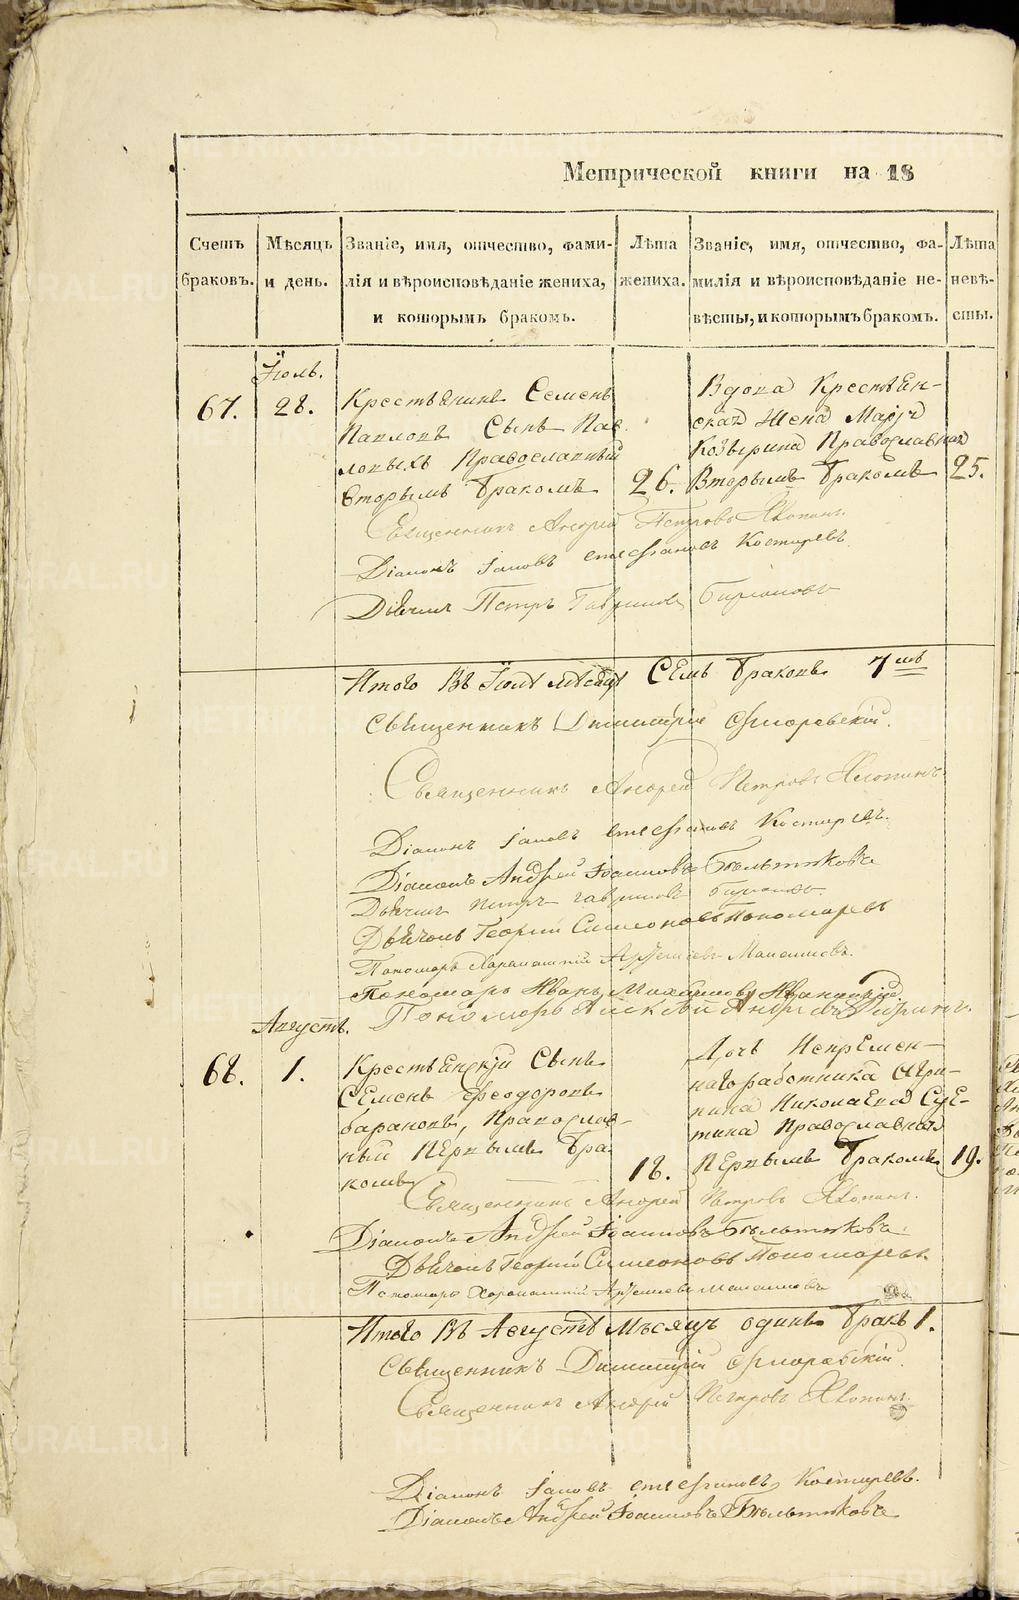 Метрической книги на 18
Счетъ браковъ.
Мѣсяцъ и день.
Званіе, имя, отчество, фами-
лія и вѣроисповѣданіе жениха,
и которымъ бракомъ.
Лѣта жениха.
Званіе, имя, отчество, фа-
милія и вѣроисповѣданіе не-
вѣсты, и которымъ бракомъ.
Лѣта невѣ-
сты.
Іюль.
67.
28.
Крестьянинъ Семенъ
Павловъ Сынъ Пав
ловыхъ Православный
Вторымъ бракомъ
26.
Вдова Крестьян-
ская жена Марья
Козырина Православная
Вторымъ бракомъ
25.
Священникъ Андрей Петровъ
Діаконъ Іаковъ Стефановъ Костаревъ
Дьячикъ Петръ Гавриловъ
Итого Въ Іюлѣ мѣсяцѣ Семь браковъ 7мь
Священникъ Димитрій
Священникъ Андрей Петровъ
Діаконъ Іаковъ Стефановъ Костаревъ.
Діаконъ Андрей Іоанновъ Бѣльтюковъ
Дьячикъ Петръ Гавриловъ
Дьячокъ Георгій Симеоновъ Пономаревъ
Пономарь Харалампій
Пономарь Иванъ Михайловъ
Пономарь Андреевъ
Августъ.
68.
1.
Крестьянскій Сынъ
Семенъ Феодоровъ
барановъ, Православ-
ный Первымъ Бра
комъ
18.
Дочь Непремен-
наго работника Агри-
пина Николаева Суе-
тина Православная
Первымъ бракомъ
19.
Священникъ Андрей Петровъ
Діаконъ Андрей Іоанновъ Бѣльтюковъ
Дьячокъ Георгій Симеоновъ Пономаревъ.
Пономарь Харалампій
Итого Въ Августѣ Мѣсяцѣ одинъ бракъ 1.
Священникъ Димитрій
Священникъ Андрей Петровъ
Діаконъ Іаковъ Стефановъ Костаревъ.
Діаконъ Андрей Іоанновъ Бѣльтюковъ
METRIKI.GASO-URAL.RU